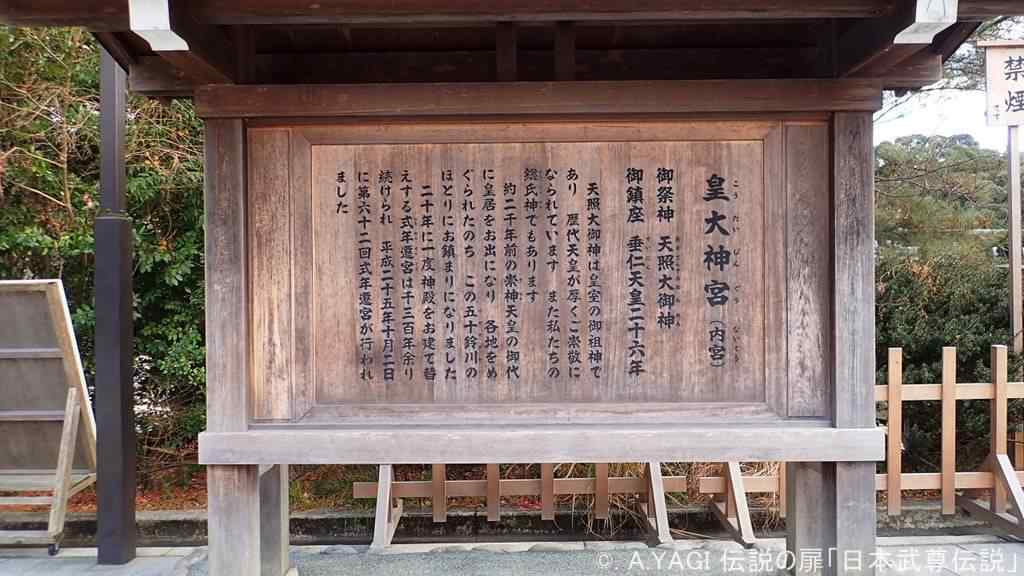 皇大神宮（内宮）
こうたいじんぐう ないくう
御祭神 天照大御神
御鎮座 垂仁天皇二十六年
すいにん
天照大御神は皇室の御祖神で
あり 歴代天皇が厚くご崇敬に
なられています また私たちの
総氏神でもあります
約二千年前の崇神天皇の御代
に皇居をお出になり 各地をめ
ぐられたのち この五十鈴川の
ほとりにお鎮まりになりました
二十年に一度神殿をお建て替
えする式年遷宮は千三百年余り
続けられ 平成二十五年十月二日
に第六十二回式年遷宮が行われ
ました
禁煙
©. A.YAGI 伝説の扉「日本武尊伝説」